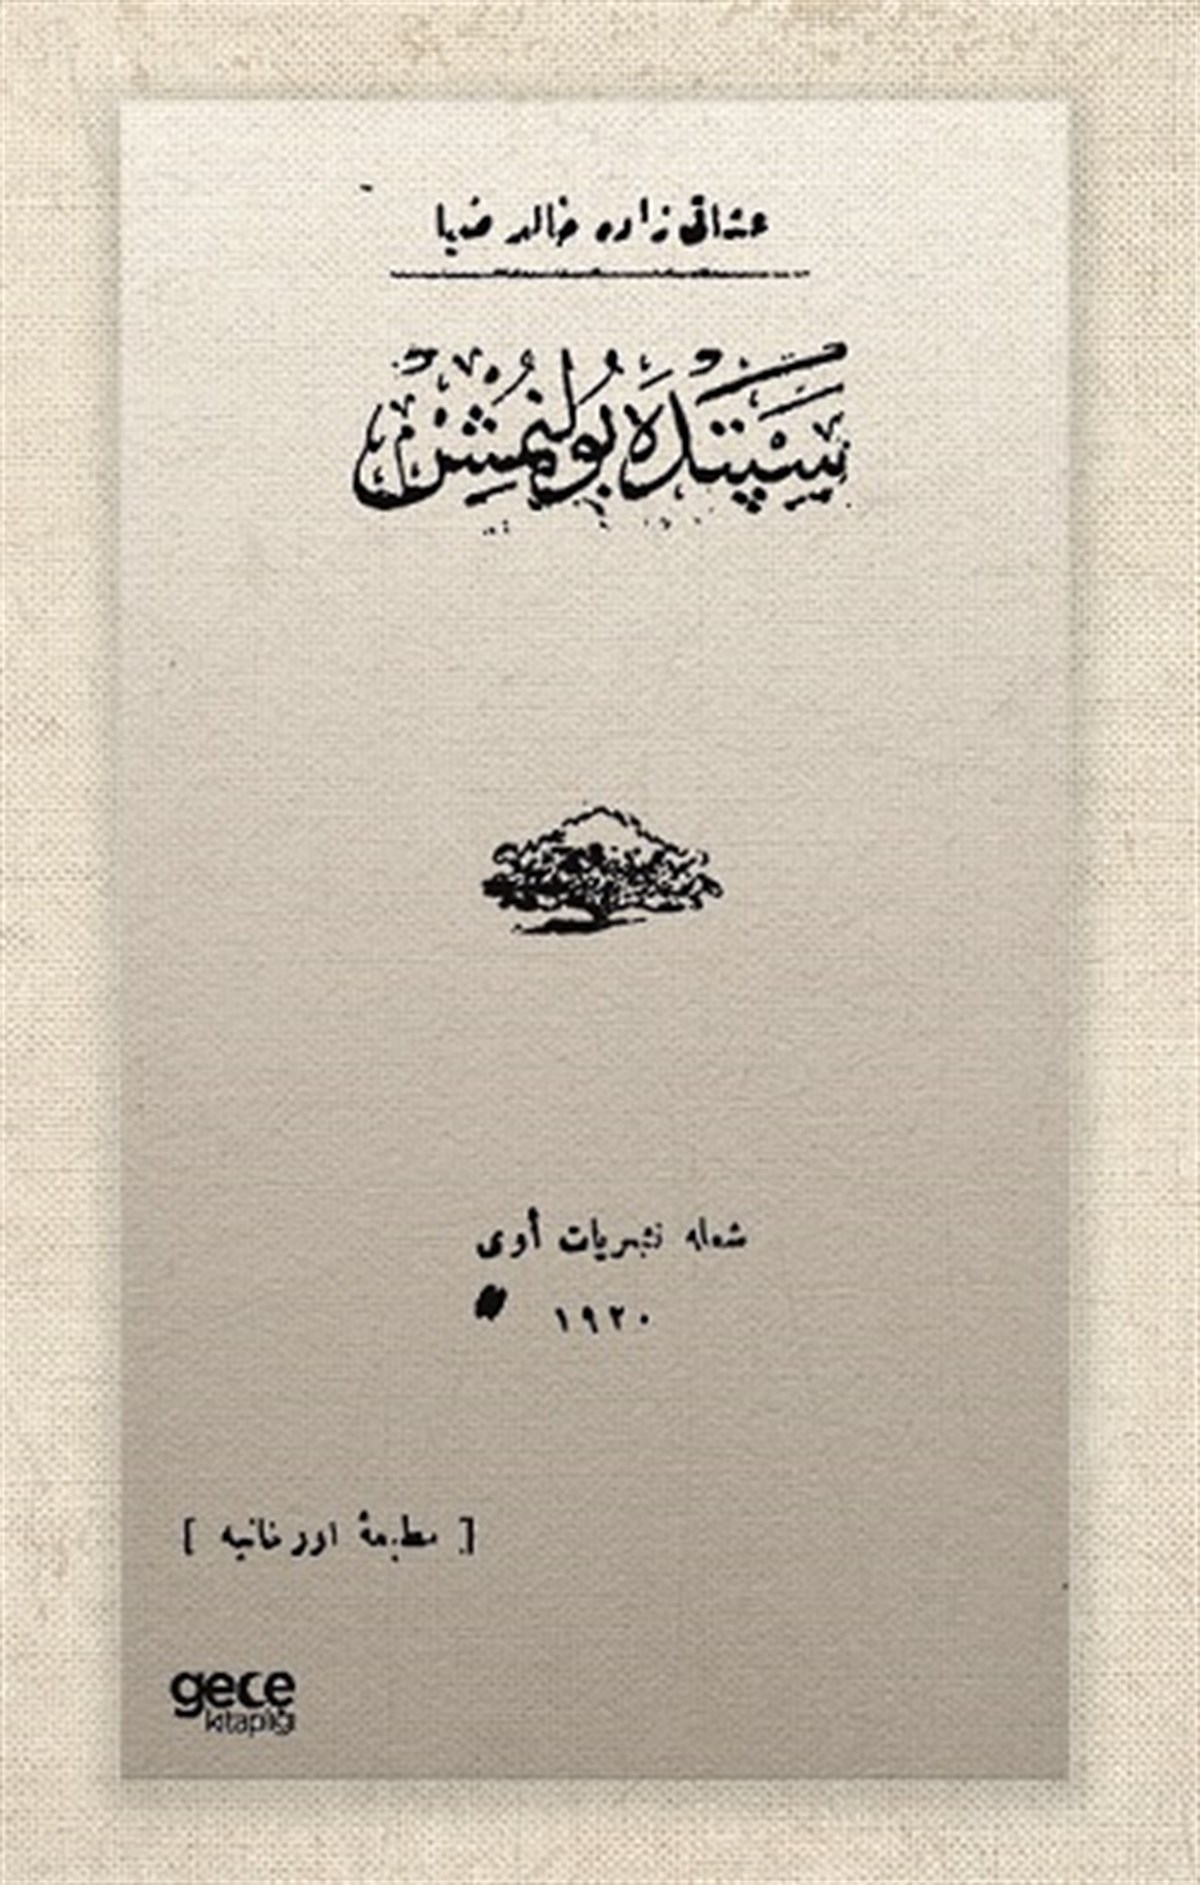 عشاقی زاده خالد ضیا
سَپَتْدَه بُولُنْمُشْ
شعله نشریات أوی
١٩٢٠
[ مطبعهٔ اورخانیه ]
gece
kitaplığı